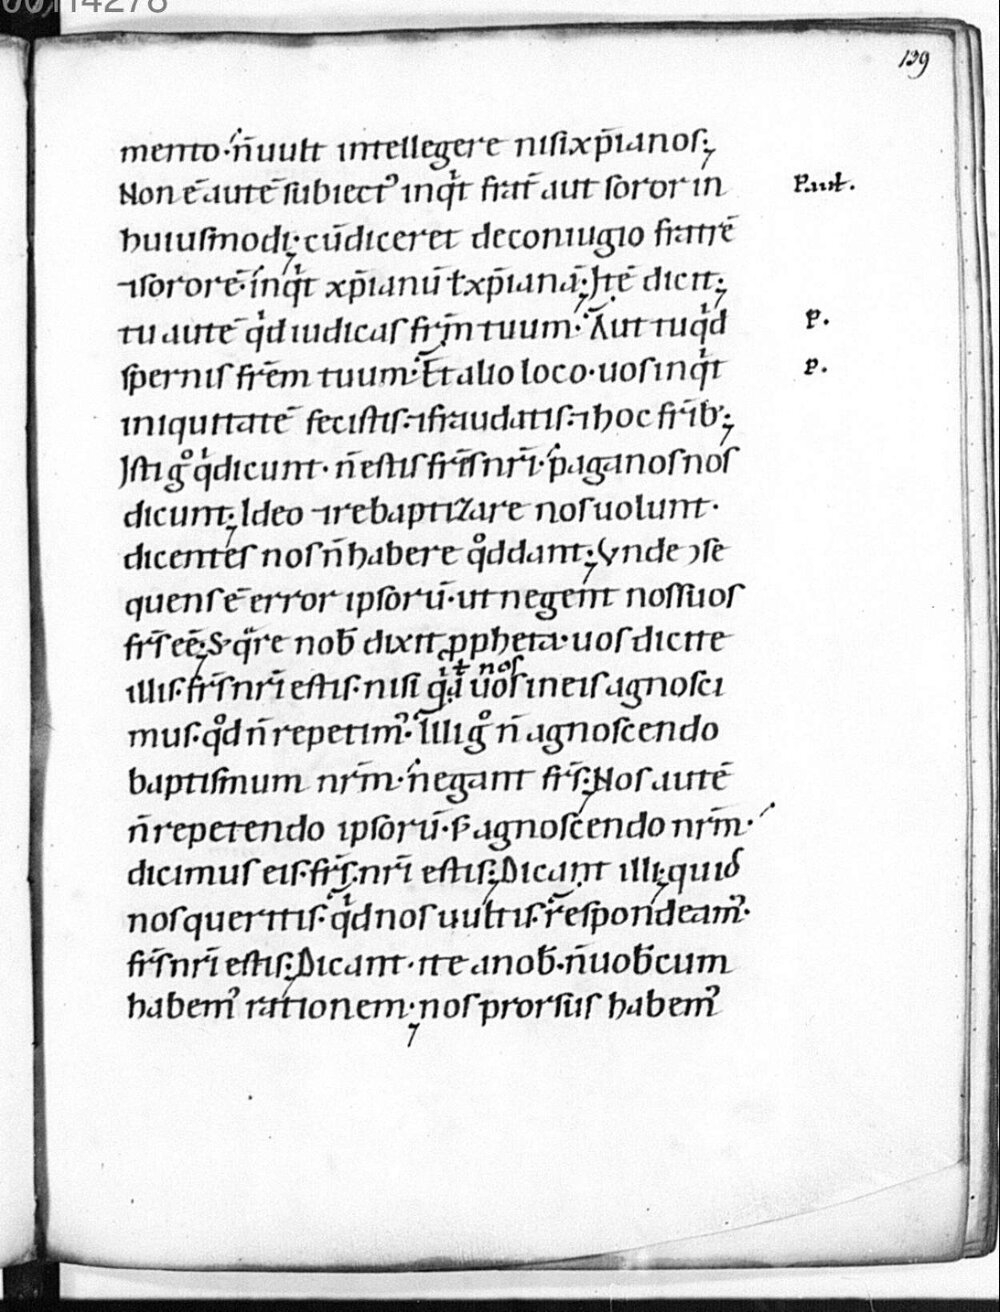 00114278
139
mento· n̄ uult intellegere nisi xp̄ianos;
Non ē autē subiectꝰ inqͥt frat̄ aut soror in
Paul.
huiusmodi; cū diceret de coniugio fratrē
⁊ sororē· inqͥt xp̄ianū ł xp̄ianā; Itē dicit;
tu autē qͥd iudicas fr̄m tuum· Aut tu qͥd
P.
spernis fr̄em tuum· Et alio loco· uos inqͥt
P.
iniquitatē fecistis· ⁊ fraudatis· ⁊ hoc fr̄ib;
Isti gͦ qͥ dicunt· n̄ estis fr̄s nr̄i· paganos nos
dicunt; Ideo ⁊ rebaptizare nos uolunt·
dicentes nos n̄ habere qͦd dant; Vnde ↄse
quens ē error ipsorū· ut negent nos suos
fr̄s eē; S; qͣre nob̄ dixit ꝓpheta· uos dicite
illis· fr̄s nr̄i estis· nisi qͥa uos in eis agnosci
ł nos
mus· qͦd n̄ repetimꝰ· Illi gͦ n̄ agnoscendo
baptismum nr̄m· negant fr̄s; Nos autē
n̄ repetendo ipsorū· s; agnoscendo nr̄m·
dicimus eis· fr̄s nr̄i estis; Dicant illi; quid
nos queritis· qͥd nos uultis· respondeamꝰ·
fr̄s nr̄i estis; Dicant· ite a nob̄· n̄ uob̄cum
habemꝰ rationem; nos prorsus habemꝰ